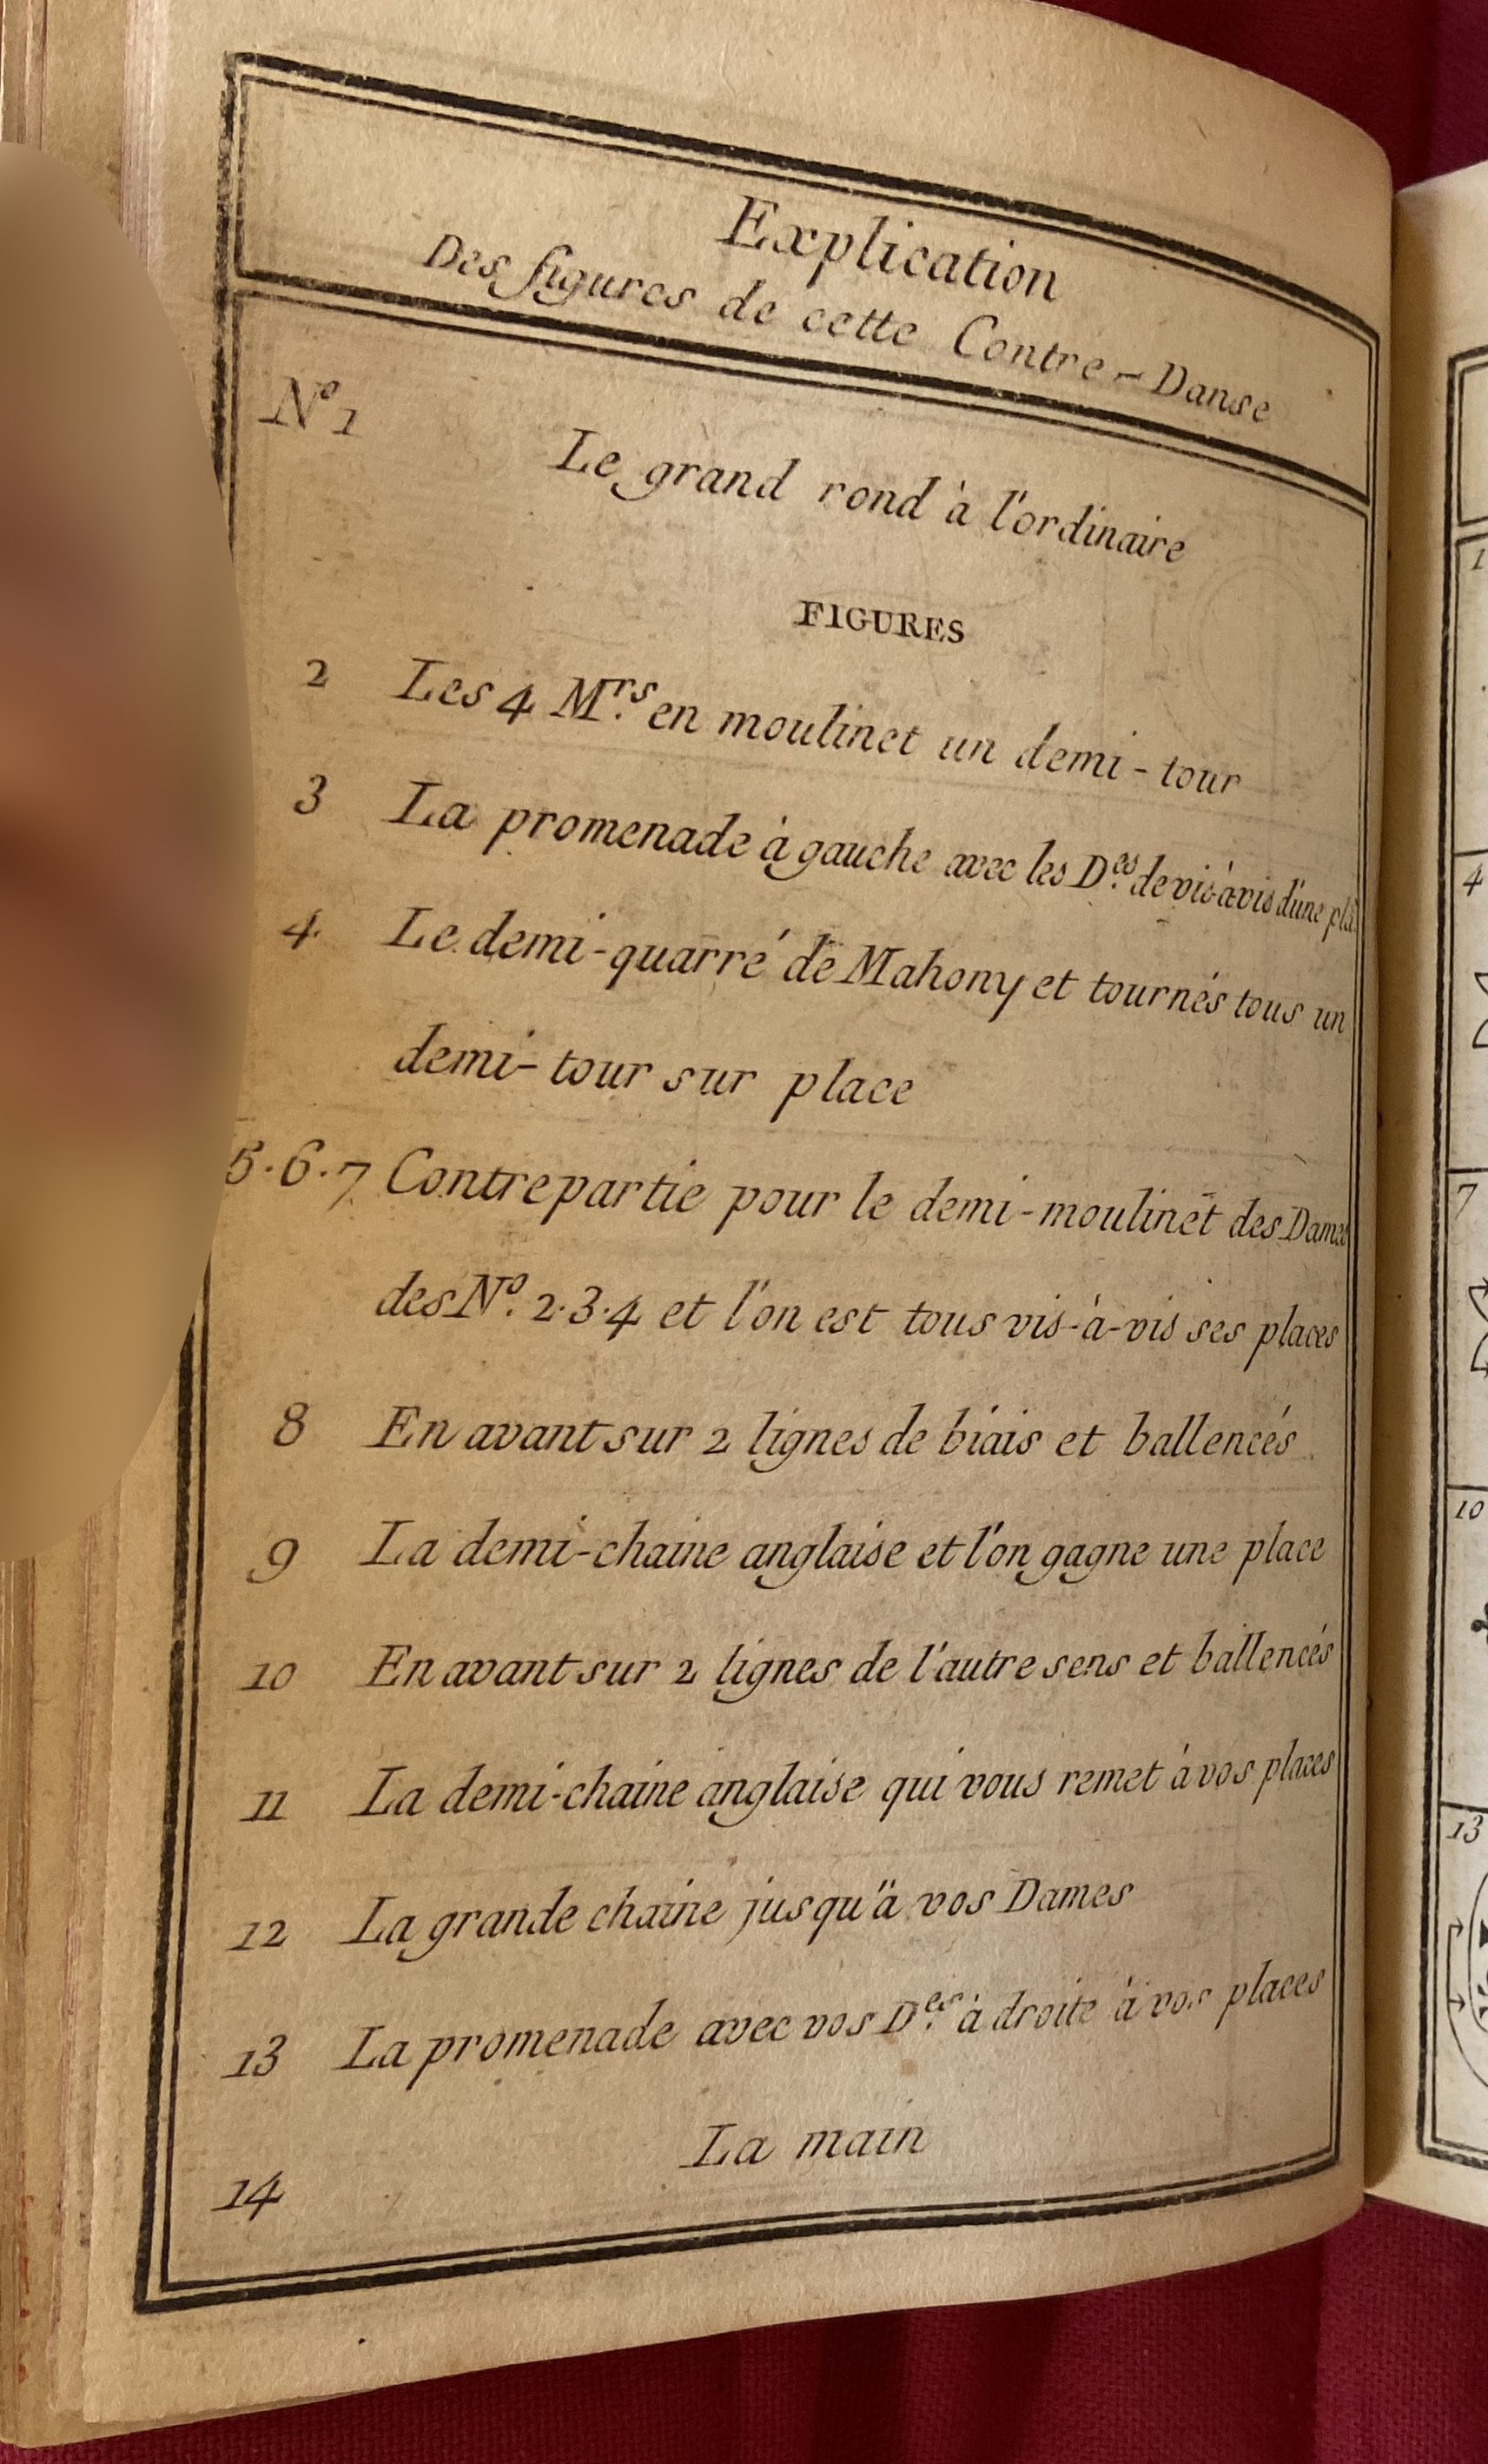 Explication
Des figures de cette Contre-Danse
N.º 1
Le grand rond à l'ordinaire
FIGURES
2 Les 4 M.rs en moulinet un demi-tour
3 La promenade à gauche avec les D.es de vis-à-vis d'une
4 Le demi-quarré de Mahony et tournés tous un
demi-tour sur place
5.6.7 Contrepartie pour le demi-moulinet des Dames
des N.º 2.3.4 et l'on est tous vis-à-vis ses places
8 En avant sur 2 lignes de biais et ballencés
9 La demi-chaine anglaise et l'on gagne une place
10 En avant sur 2 lignes de l'autre sens et ballencés
11 La demi-chaine anglaise qui vous remet à vos places
12 La grande chaine jusqu'à vos Dames
13 La promenade avec vos D.es à droite à vos places
14 La main
1
4
7
10
13